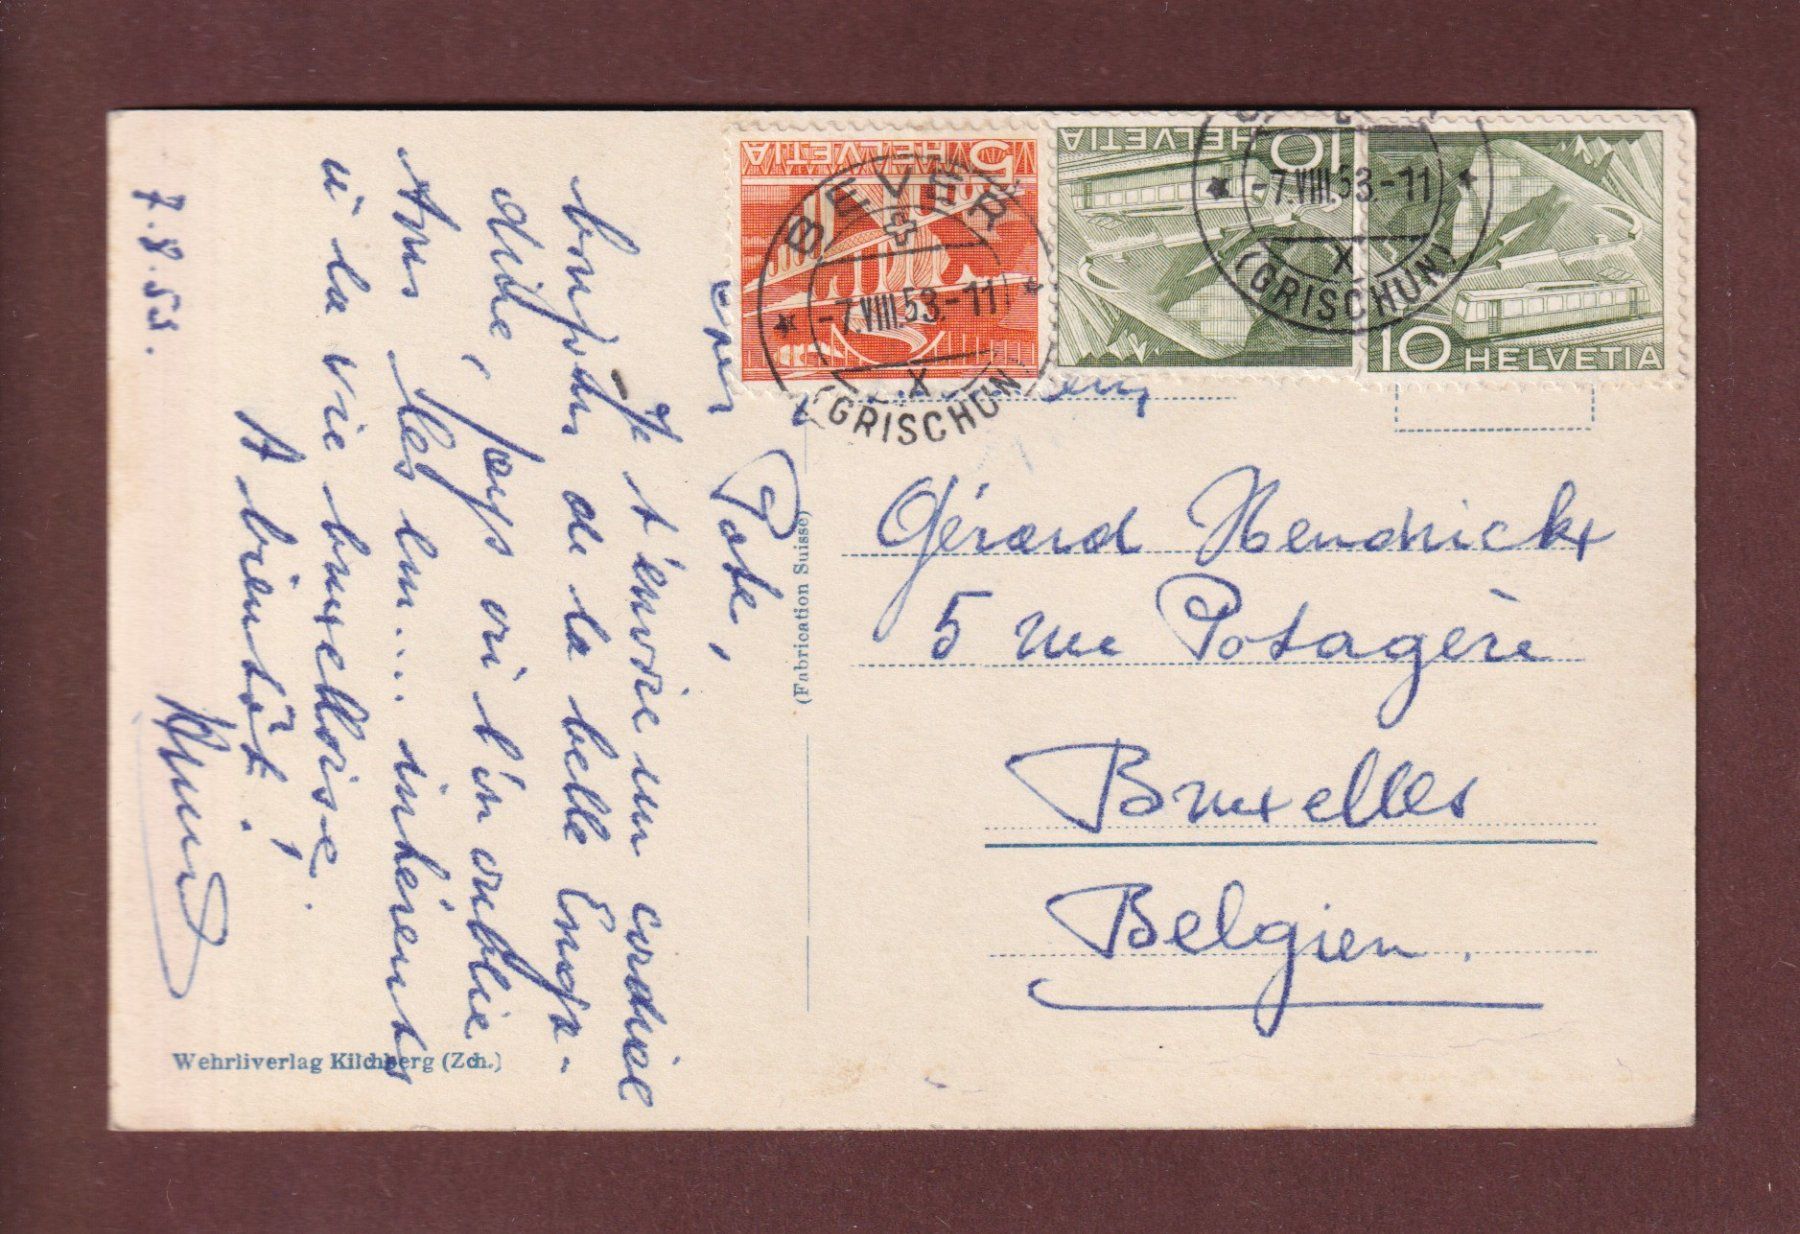 7.8.53.
Pote,
Je t'envoie un cordial
bonjour de la belle Enga-
dine, pays où l'on oublie
tous les em... inhérents
à la vie bruxelloise.
A bientôt,
HELVETIA 5
BEVER
-7.VIII.53.-11
X
(GRISCHUN)
HELVETIA 10
-7.VIII.53.-11
X
(GRISCHUN)
10 HELVETIA
Gérard Hendrickx
5 rue Potagère
Bruxelles
Belgien.
(Fabrication Suisse)
Wehrliverlag Kilchberg (Zch.)